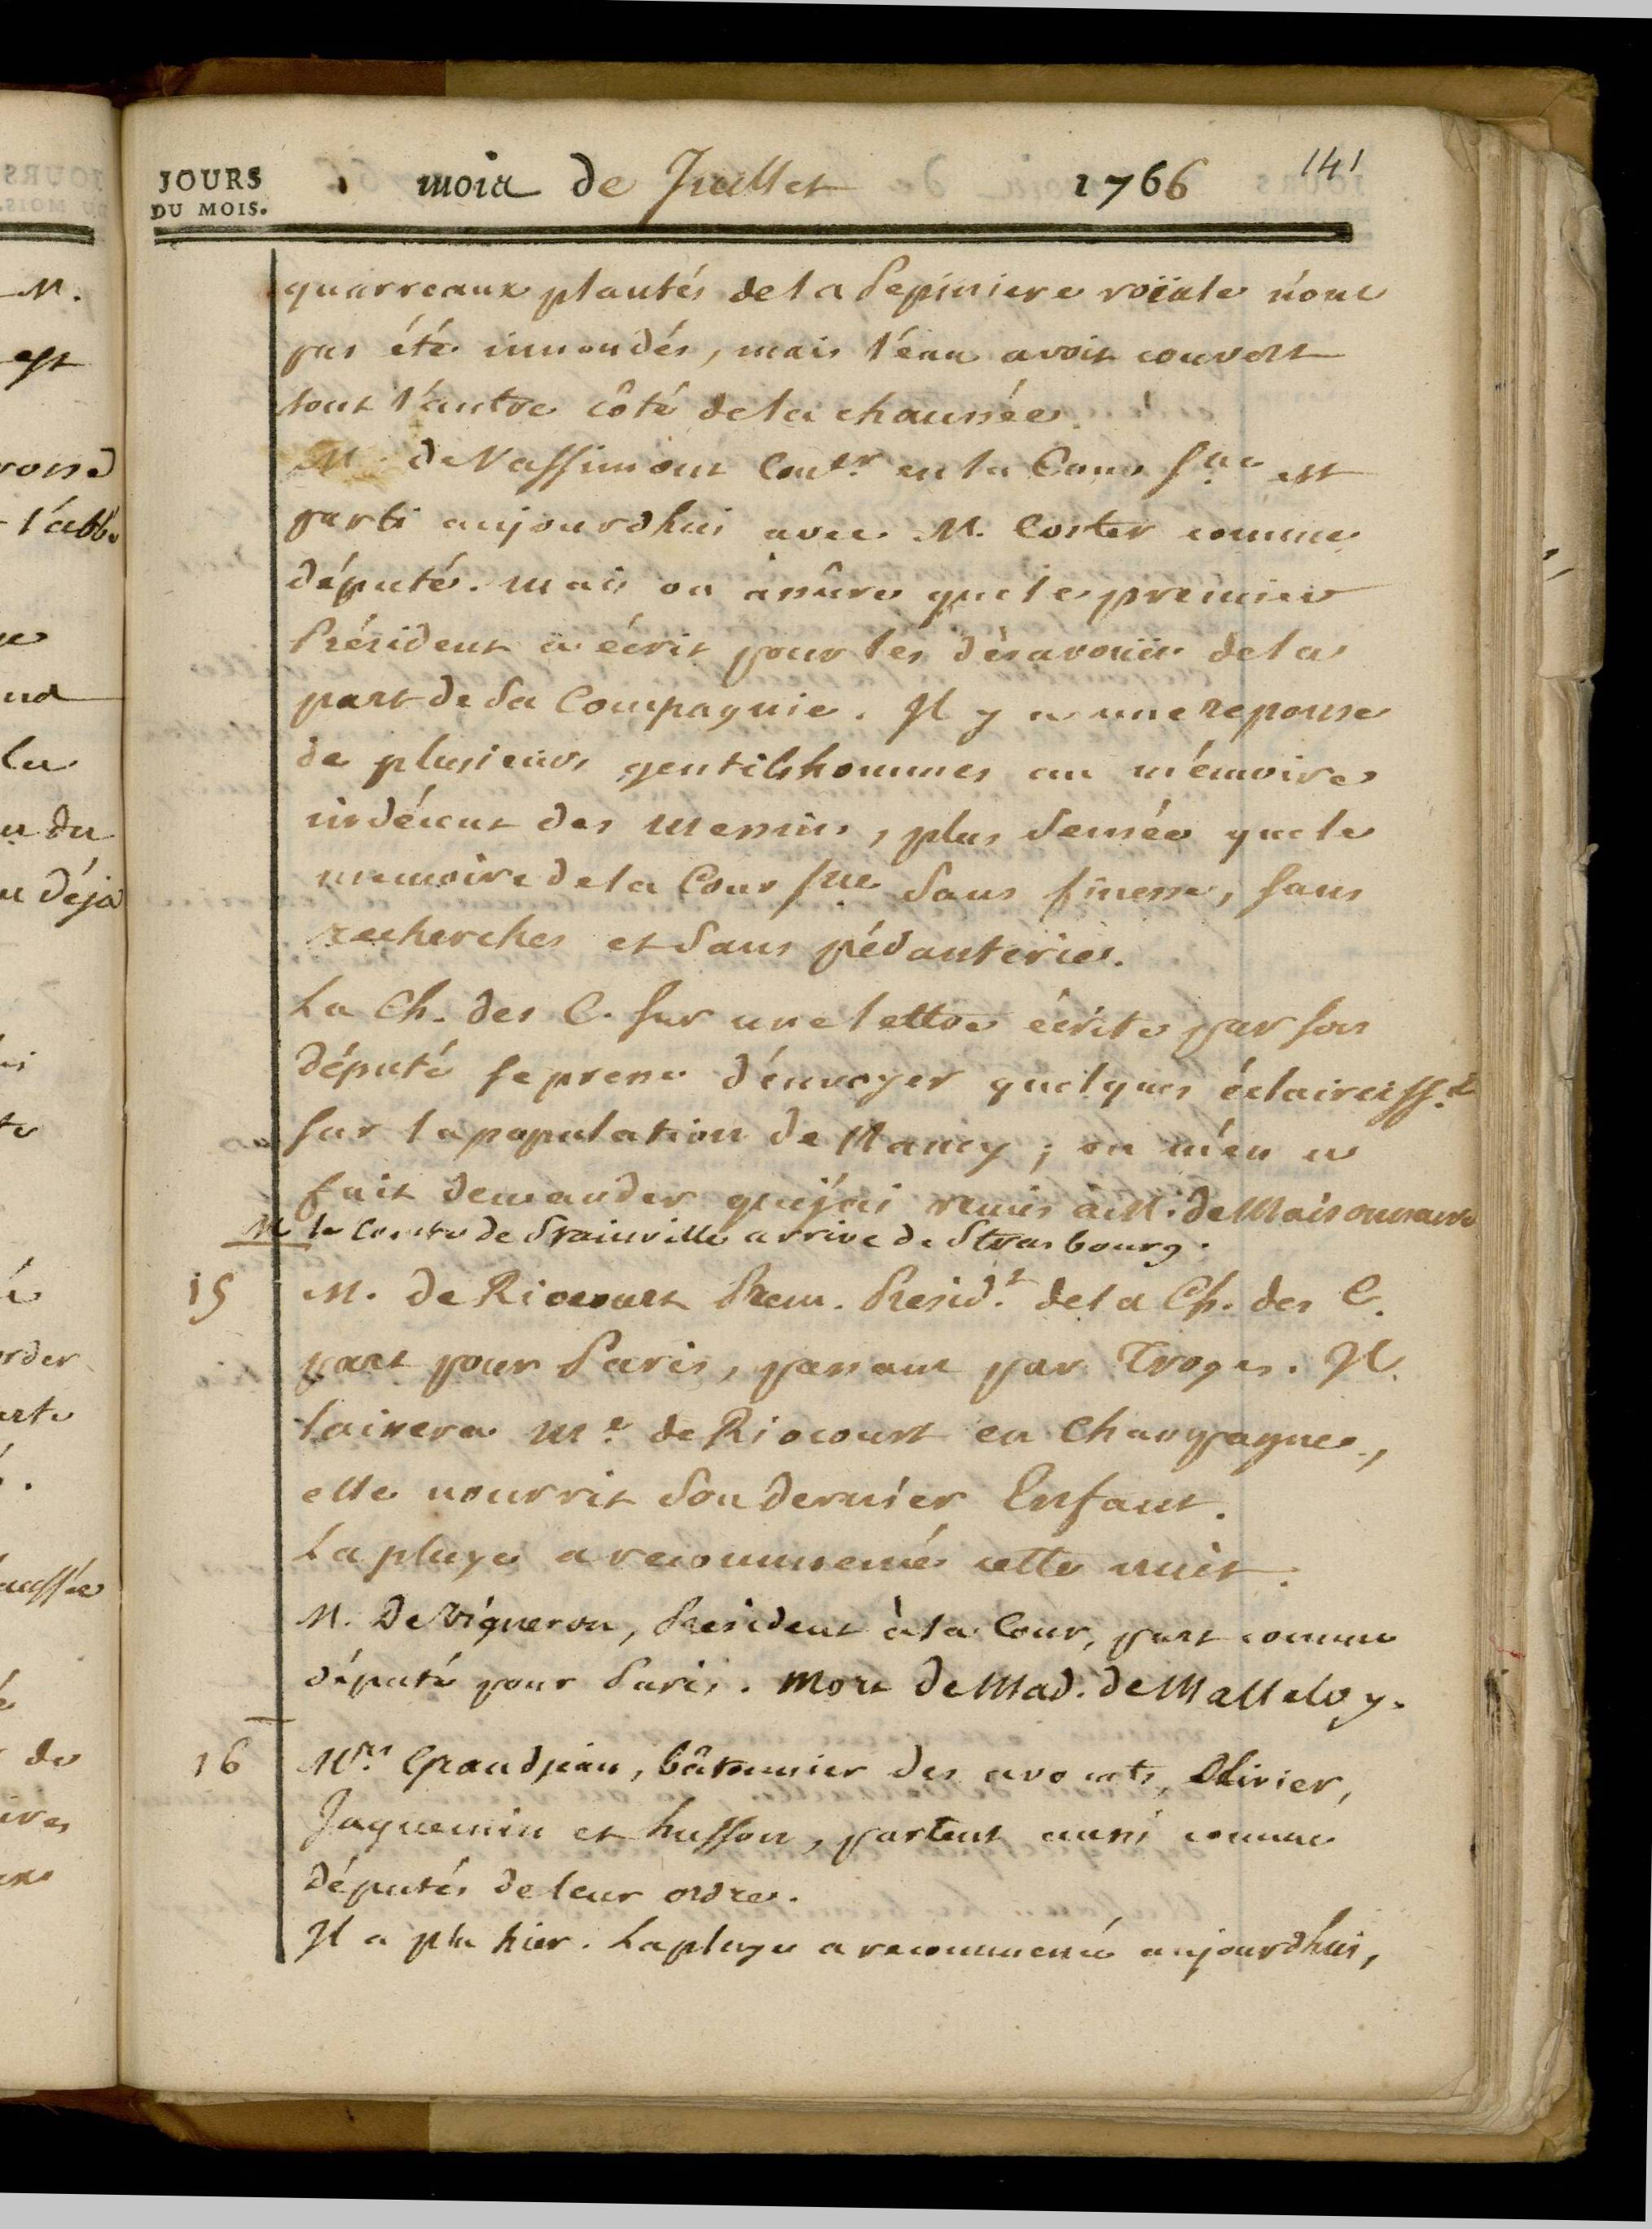 JOURS
DU MOIS.
mois de Juillet 1766 141
quarreaux plantés de la Pepiniere roïale n'ont
pas été innondés, mais l'eau avoit couvert
tout l'autre côté de la chaussée.
M. de Vassimont Conser. en la Cour sne est
parti aujourd'hui avec M. Coster comme
député. mais on assûre que le premier
Président a écrit pour les désavoüer de la
part de sa Compagnie. Il y a une reponse
de plusieurs gentilshommes au mémoire
indécent des Messins, plus sensée que le
memoire de la Cour sne. sans finesse, sans
recherches et sans pédanterie.
La Ch. des C. sur une lettre écrite par son
député se presse d'envoyer quelques éclairciss.ts
sur la population de Nancy; on m'en a
fait demander que j'ai remis à M. de Maisonneuve
M. le Comte de Stainville arrive de Strasbourg.
15 M. de Riocourt Prem. Presid.t de la Ch. des C.
part pour Paris, passant par Troyes. Il
laissera Me. de Riocourt en Champagne,
elle nourrit son dernier Enfant.
La pluye a recommencé cette nuit.
M. De Vigneron, President à la Cour, part comme
député pour Paris. Mort de Mad. de Malleloy.
16 Mrs. Grandjean, bâtonnier des avocats, Olivier,
Jaquemin et husson, partent aussi comme
députés de leur ordre.
Il a plu hier. La pluye a recommencé aujourd'hui,